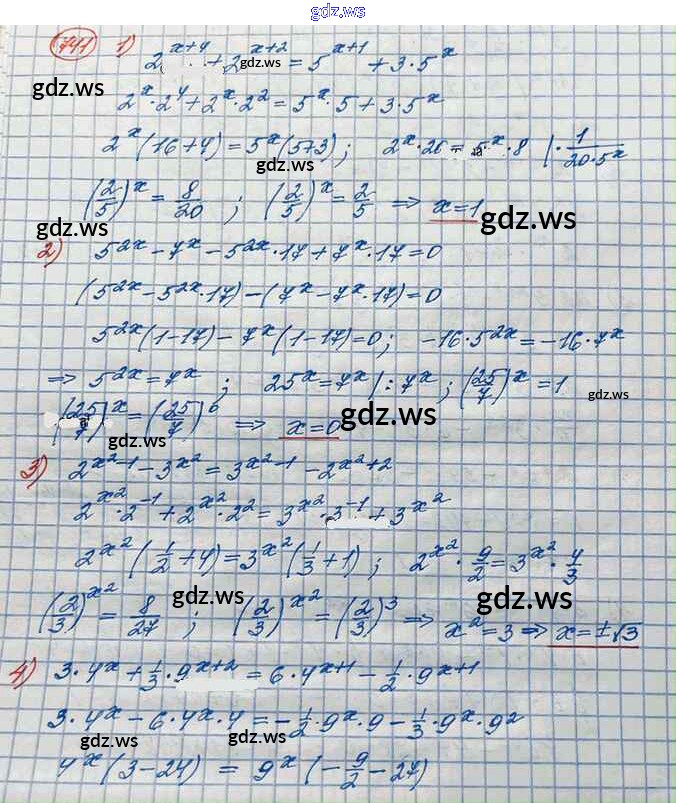 gdz.ws
741 1) 2^{x+4} + 2^{x+2} = 5^{x+1} + 3·5^x
gdz.ws
gdz.ws
2^x·2^4 + 2^x·2^2 = 5^x·5 + 3·5^x
2^x(16+4) = 5^x(5+3); 2^x·20 = 5^x·8 |·\frac{1}{20·5^x}
gdz.ws
(\frac{2}{5})^x = \frac{8}{20}; (\frac{2}{5})^x = \frac{2}{5} ⇒ x=1
gdz.ws
gdz.ws
2) 5^{2x} - 7^x - 5^{2x}·17 + 7^x·17 = 0
(5^{2x} - 5^{2x}·17) - (7^x - 7^x·17) = 0
5^{2x}(1-17) - 7^x(1-17) = 0; -16·5^{2x} = -16·7^x
⇒ 5^{2x} = 7^x; 25^x = 7^x |: 7^x; (\frac{25}{7})^x = 1
gdz.ws
(\frac{25}{7})^x = (\frac{25}{7})^0 ⇒ x=0
gdz.ws
gdz.ws
3) 2^{x^2-1} - 3^{x^2} = 3^{x^2-1} - 2^{x^2+2}
2^{x^2}·2^{-1} + 2^{x^2}·2^2 = 3^{x^2}·3^{-1} + 3^{x^2}
2^{x^2}(\frac{1}{2}+4) = 3^{x^2}(\frac{1}{3}+1); 2^{x^2}·\frac{9}{2} = 3^{x^2}·\frac{4}{3}
gdz.ws
gdz.ws
(\frac{2}{3})^{x^2} = \frac{8}{27}; (\frac{2}{3})^{x^2} = (\frac{2}{3})^3 ⇒ x^2=3 ⇒ x=±√3
gdz.ws
4) 3·4^x + \frac{1}{3}·9^{x+2} = 6·4^{x+1} - \frac{1}{2}·9^{x+1}
3·4^x - 6·4^x·4 = -\frac{1}{2}·9^x·9 - \frac{1}{3}·9^x·9^2
gdz.ws
gdz.ws
4^x(3-24) = 9^x(-\frac{9}{2}-27)
gdz.ws